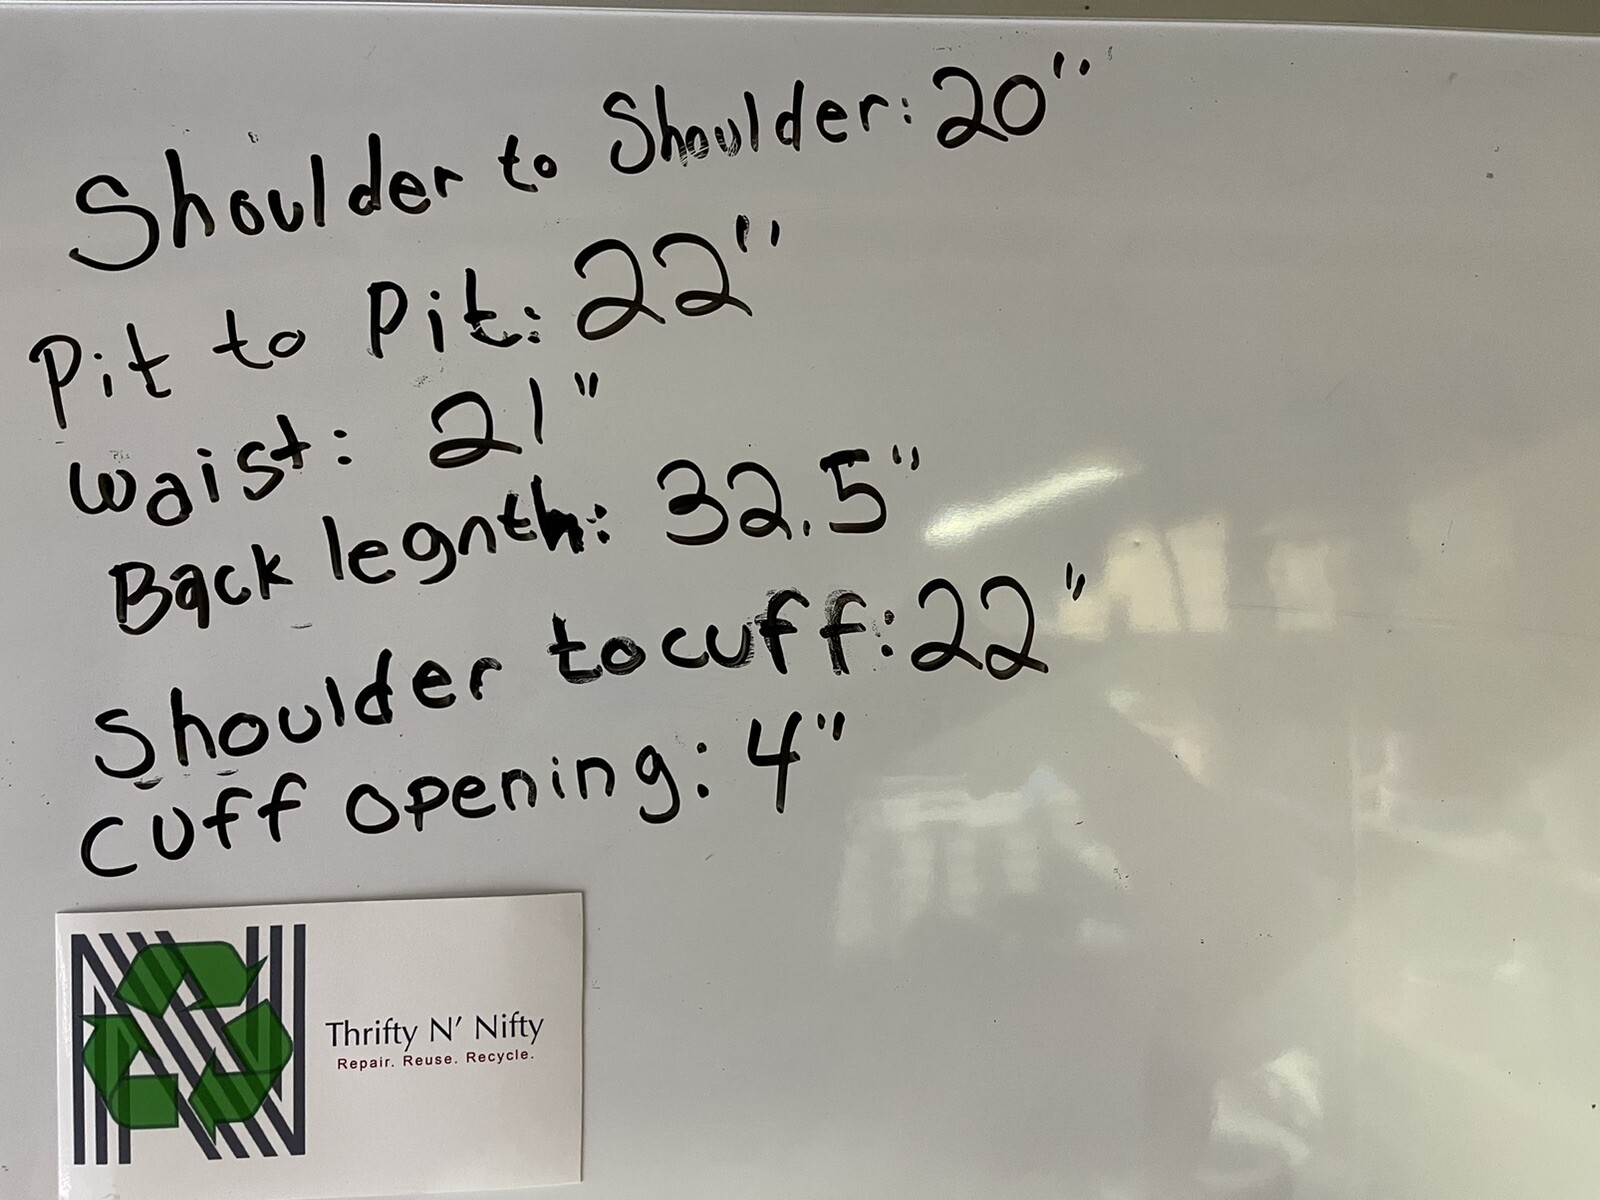 Shoulder to Shoulder: 20"
Pit to Pit: 22"
Waist: 21"
Back legnth: 32.5"
Shoulder to cuff: 22"
cuff opening: 4"
Thrifty N' Nifty
Repair. Reuse. Recycle.